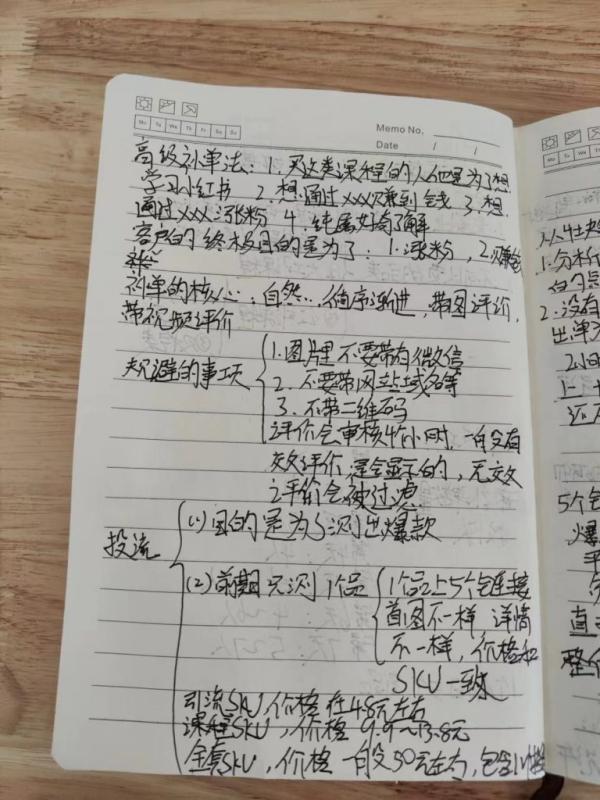 Mo Tu We Th Fr Sa Su
Memo No.
Date / /
高级补单法：1. 买这类课程的人他是为了想
学习小红书 2. 想通过xxx赚到钱 3. 想
通过xxx涨粉 4. 纯属好奇了解
客户的终极目的是为了：1. 涨粉，2. 赚钱
补单的核心：自然…循序渐进，带图评价，
带视频评价
规避的事项
1. 图片里不要带有微信
2. 不要带网站域名等
3. 不带二维码
评价会审核4个小时，一般没有
效评价是会显示的，无效
评价会被过虑
投流
(1) 目的是为了测出爆款
(2) 前期只测1个品
1个品上5个链接
首图不一样 详情
不一样，价格和
SKU一致
引流SKU，价格在4.8元左右
课程SKU，价格 9.9~13.8元
全套SKU，价格一般30元左右，包含
从
1. 分析
2. 没有
出单
还
5个
爆
直
整个